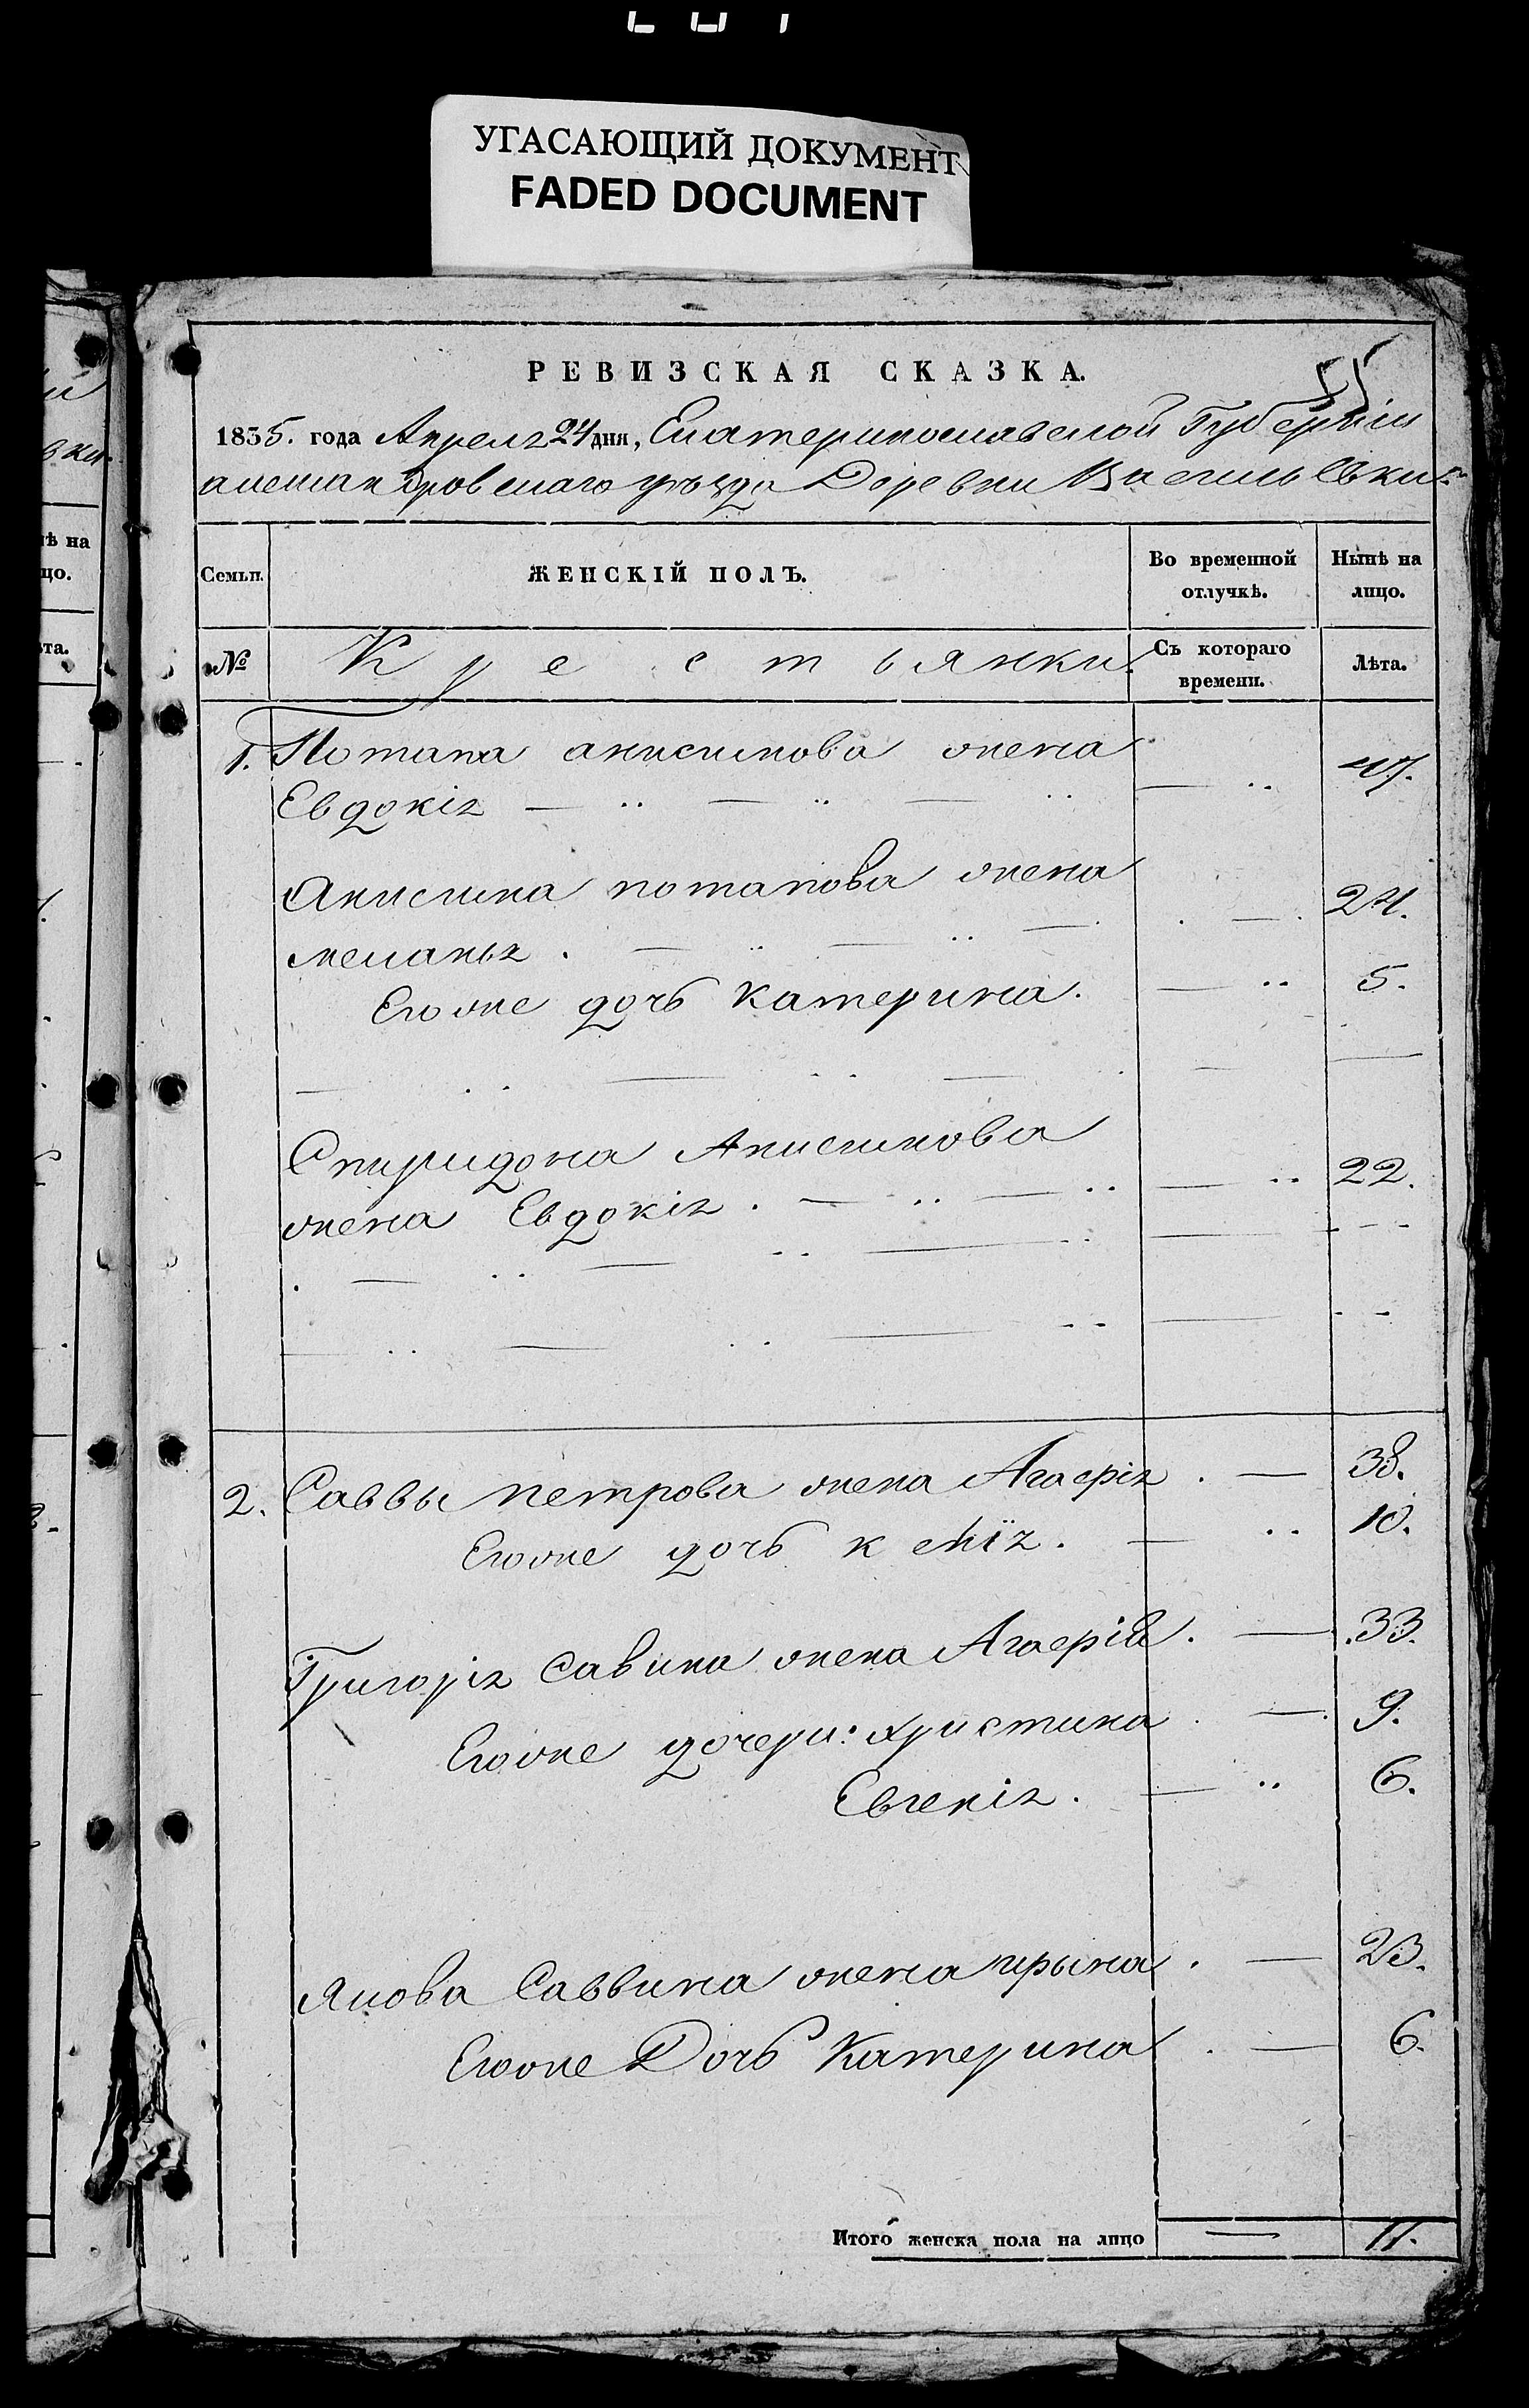 УГАСАЮЩИЙ ДОКУМЕНТ
FADED DOCUMENT
55
РЕВИЗСКАЯ СКАЗКА.
1835. года Апреля 24 дня, Екатеринославской Губерніи
александровскаго уѣзда Деревни Васильевки
Семьи.
ЖЕНСКІЙ ПОЛЪ.
Во временной отлучкѣ.
Нынѣ на лицо.
№
Крестьянки.
Съ котораго времени.
Лѣта.
1. Потапа анисимова жена
Евдокія — 47.
Анисима потапова жена
меланья. — 24.
Егоже дочь Катерина. — 5.
Спиридона Анисимова
жена Евдокія. — 22.
2. Саввы петрова жена Агафія. — 38.
Егоже дочь — 10.
Григорія Савина жена Агафія. — 33.
Егоже дочери: христина. — 9.
Евгенія. — 6.
Якова Саввина жена ирына. — 23.
Егоже Дочь Катерина. — 6.
Итого женска пола на лицо — 11.
ѣ на
цо.
та.